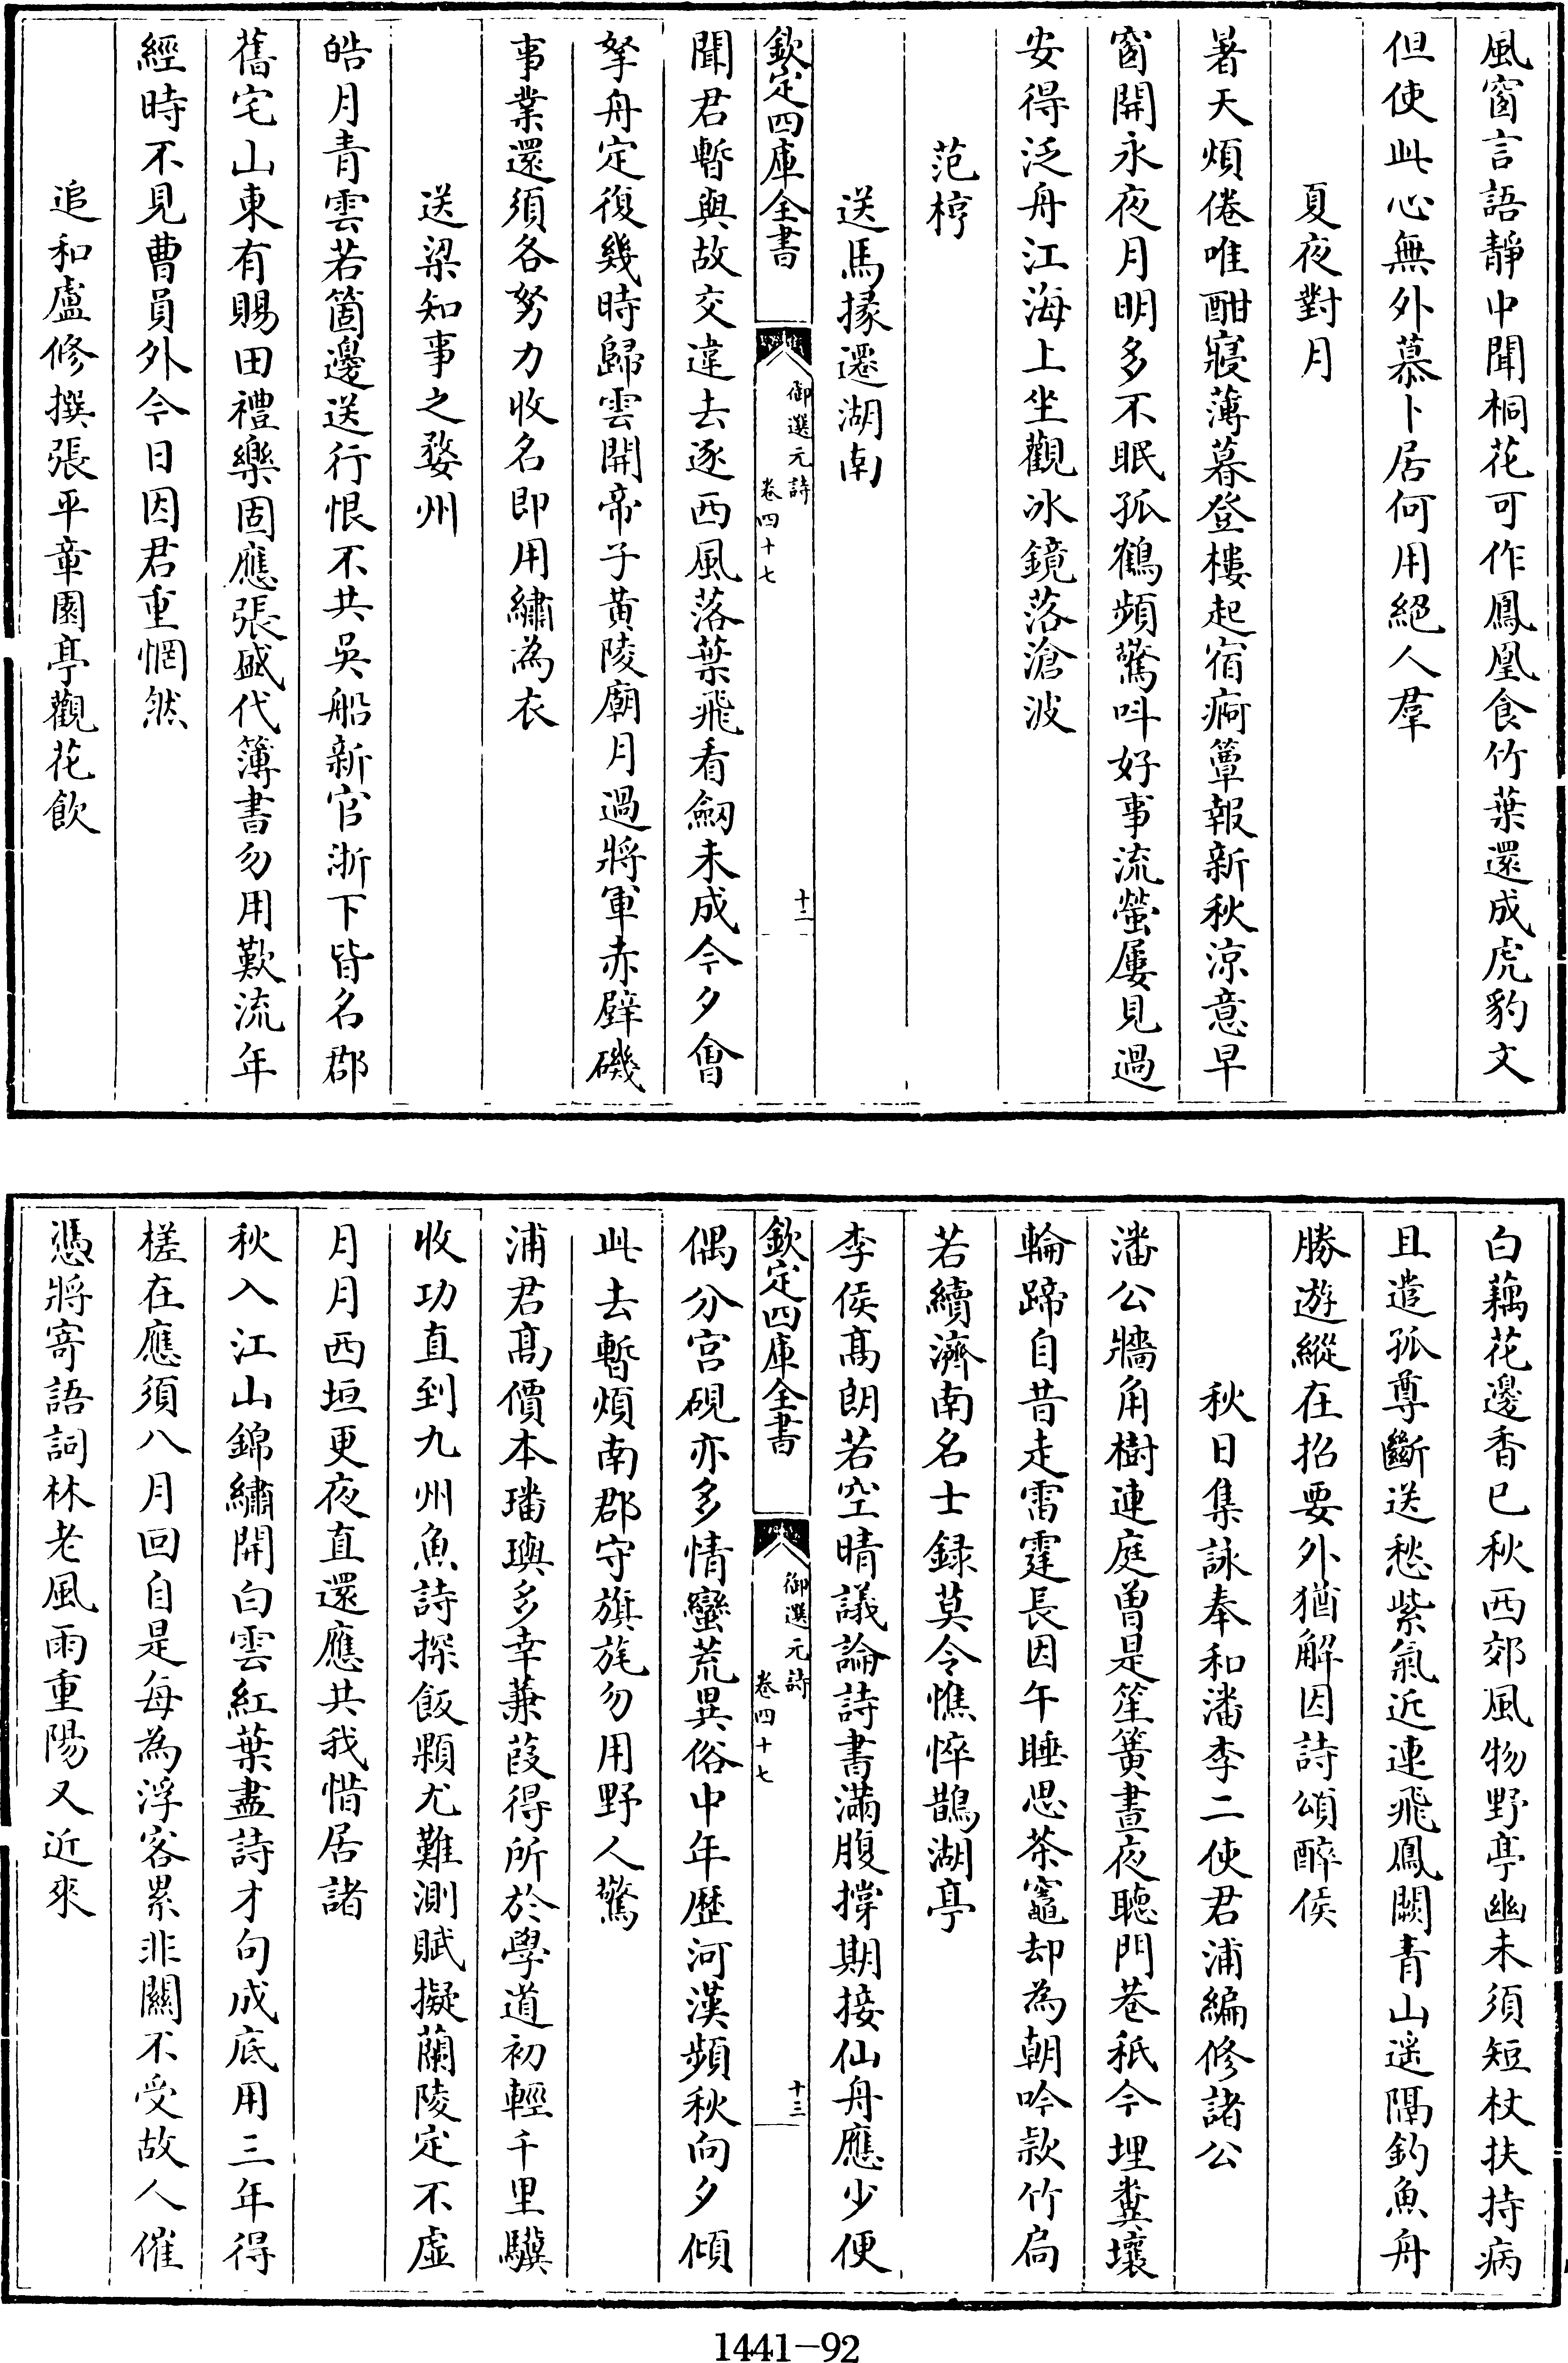 風窗言語靜中聞桐花可作鳳凰食竹葉還成虎豹文
但使此心無外慕卜居何用絕人羣
夏夜對月
暑天煩倦唯酣寢薄暮登樓起宿痾簟報新秋涼意早
窗開永夜月明多不眠孤鶴頻驚呌好事流螢屢見過
安得泛舟江海上坐觀冰鏡落滄波
范梈
送馬掾遷湖南
欽定四庫全書
御選元詩
卷四十七
十二
聞君暫與故交違去逐西風落葉飛看劒未成今夕會
拏舟定復幾時歸雲開帝子黃陵廟月過將軍赤壁磯
事業還須各努力收名即用繡為衣
送梁知事之婺州
皓月青雲若箇邊送行恨不共吳船新官浙下皆名郡
舊宅山東有賜田禮樂固應張盛代簿書勿用歎流年
經時不見曹員外今日因君重惘然
追和盧修撰張平章園亭觀花飲
白藕花邊香已秋西郊風物野亭幽未須短杖扶持病
且遣孤尊斷送愁紫氣近連飛鳳闕青山遥隔釣魚舟
勝遊縱在招要外猶解因詩頌醉侯
秋日集詠奉和潘李二使君浦編修諸公
潘公牆角樹連庭曽是笙簧晝夜聽門巷秖今埋糞壤
輪蹄自昔走雷霆長因午睡思茶竈却為朝吟款竹扃
若續濟南名士録莫令憔悴鵲湖亭
李侯髙朗若空晴議論詩書滿腹撐期接仙舟應少便
欽定四庫全書
御選元詩
卷四十七
十三
偶分宫硯亦多情蠻荒異俗中年歴河漢頻秋向夕傾
此去暫煩南郡守旗旄勿用野人驚
浦君髙價本璠璵多幸蒹葭得所於學道初輕千里驥
收功直到九州魚詩探飯顆尤難測賦擬蘭陵定不虛
月月西垣更夜直還應共我惜居諸
秋入江山錦繡開白雲紅葉盡詩才句成底用三年得
槎在應須八月回自是每為浮客累非關不受故人催
憑將寄語詞林老風雨重陽又近來
1441-92